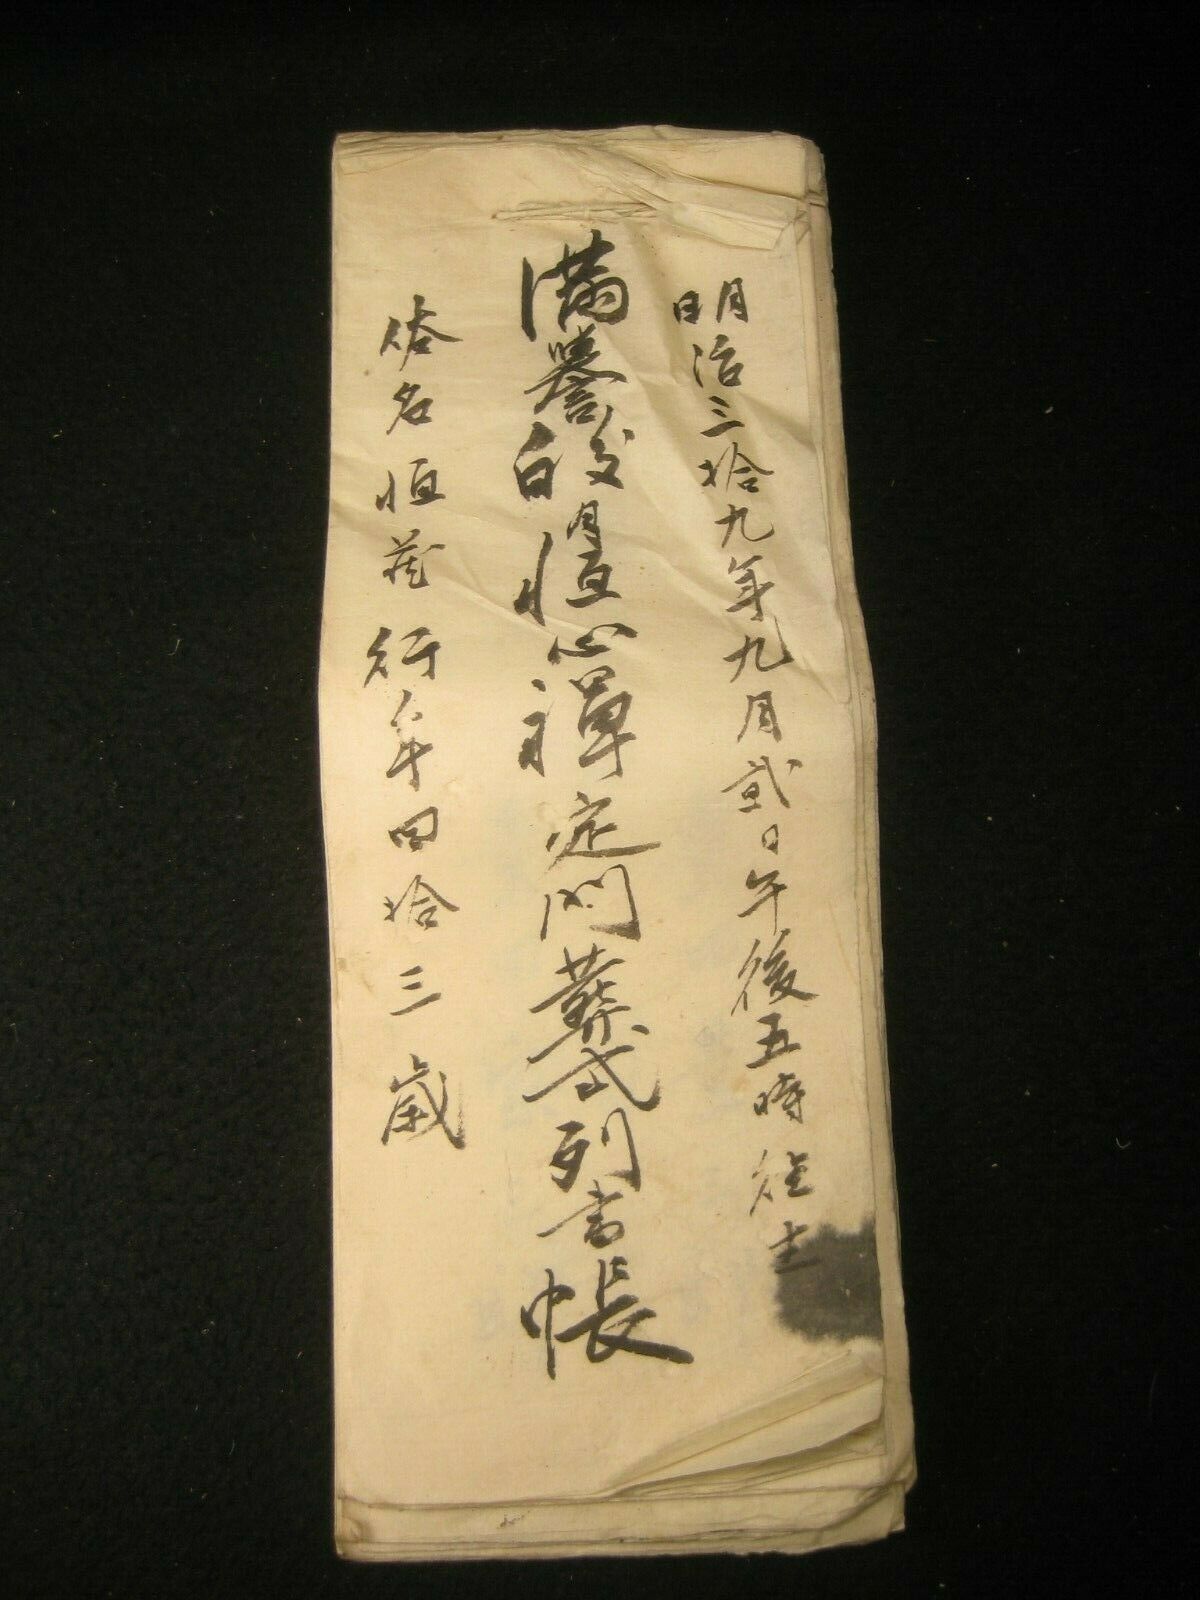 明治三拾九年九月貳日午後五時往生
満譽皎月恒心禪定門葬式列書帳
俗名恒茂行年四拾三歳